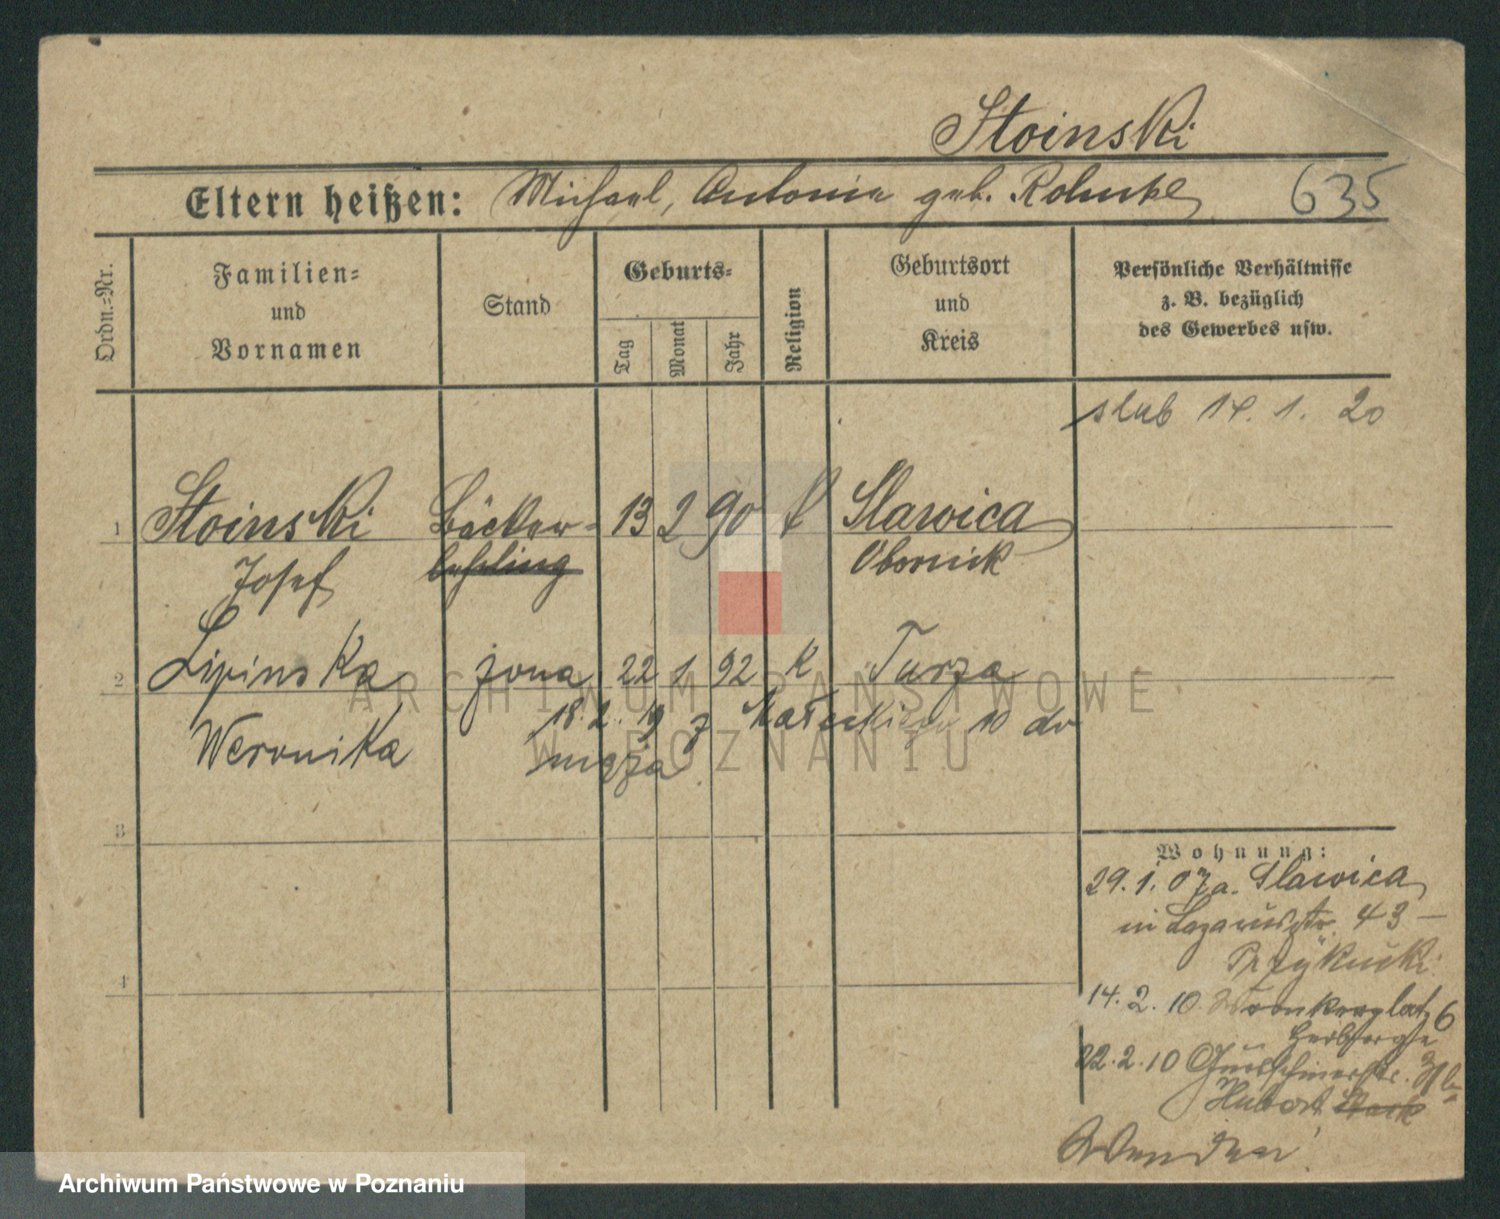 Stoinski
Eltern heißen: Michael, Antonie geb. 635
Ordn.=Nr.
Familien=
und
Vornamen
Stand
Geburts=
Tag
Monat
Jahr
Religion
Geburtsort
und
Kreis
Persönliche Verhältnisse
z. B. bezüglich
des Gewerbes usw.
slub 14. 1. 20
1 Stoinski Bäcker= 13 2 90 k Slawica
Josef lehrling Obornick
2 Lipinska żona 22 1 92 k Turza
Weronika 18. 2. 19 z Małeckiego 10 do
męża
3
4
Wohnung:
29. 1. 07 a. Slawica
in Lazarusstr. 43 –
14. 2. 10. 6
Herberge
22. 2. 10
Hubert
Wenden!
ARCHIWUM PAŃSTWOWE
W POZNANIU
Archiwum Państwowe w Poznaniu